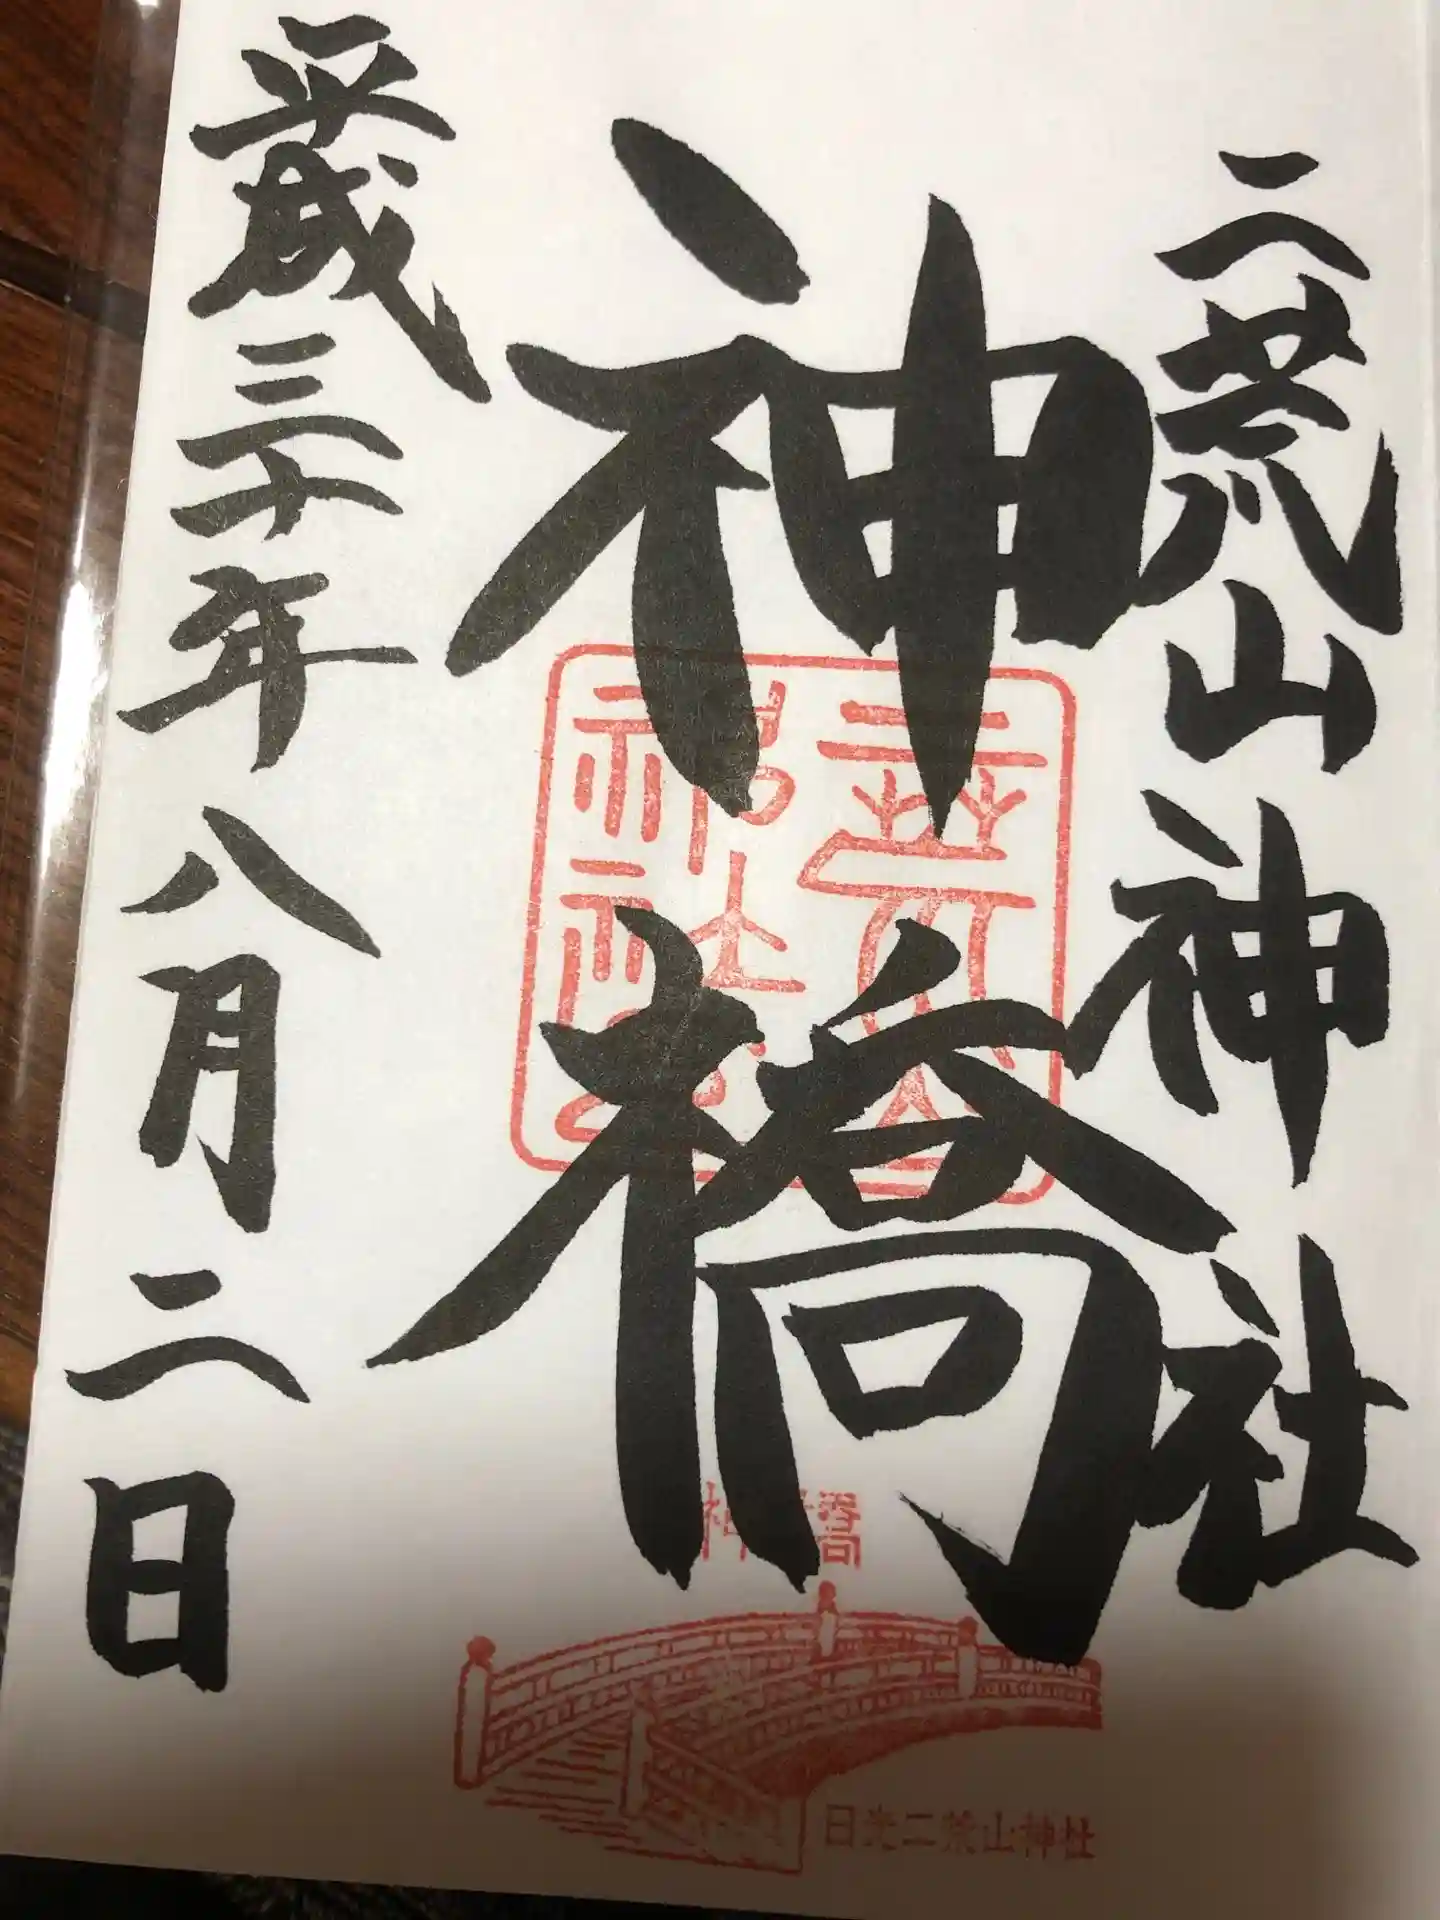 二荒山神社
神橋
平成三十年八月二日
神橋
日光二荒山神社